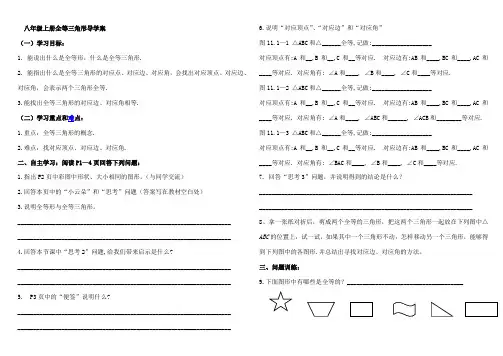 八年级上册全等三角形导学案
（一）学习目标：
1. 能说出什么是全等形，什么是全等三角形.
2. 能指出什么是全等三角形的对应点、对应边、对应角，会找出对应顶点、对应边、
对应角，会表示两个三角形全等.
3.能找出全等三角形的对应边、对应角相等.
（二）学习重点和难点：
1.重点：全等三角形的概念.
2.难点：找对应顶点、对应边、对应角.
二、自主学习：阅读P1—4页回答下列问题：
1.指出P2页中彩图中形状、大小相同的图形。（与同学交流）
2.回答本页中的“小云朵”和“思考”问题（答案写在教材空白处）
3.说明全等形与全等三角形。
4.回答本节课中“思考2”问题,给我们带来启示是什么？
5. P3页中的“便签”说明什么？
6.说明“对应顶点”、“对应边”和“对应角”
图11.1—1 △ABC和△______全等,记做:__________________
对应顶点有:A和__,B和__,C和__等对应. 对应边有:AB和____,BC和____,AC和
____等对应. 对应角有: ∠A和____, ∠B和____, ∠C和____等对应.
图11.1—2 △ABC和△______全等,记做:__________________
对应顶点有:A和__,B和__,C和__等对应. 对应边有:AB和____,BC和____,AC和
____等对应. 对应角有: ∠A和____, ∠ABC和______, ∠ACB和________等对应.
图11.1—3 △ABC和△______全等,记做:__________________
对应顶点有:A和__,B和__,C和__等对应. 对应边有:AB和____,BC和____,AC和
____等对应. 对应角有: ∠BAC和____, ∠B和____, ∠C和____等对应.
7. 回答“思考3”问题，并说明得到的结论是什么？
8、拿一张纸对折后，剪成两个全等的三角形，把这两个三角形一起放在下列图中△
ABC的位置上，试一试，如果其中一个三角形不动，怎样移动另一个三角形，能够得
到下列图中的各图形.并总结出寻找对应边、对应角的方法：
三、问题训练：
9.下面图形中有哪些是全等的？